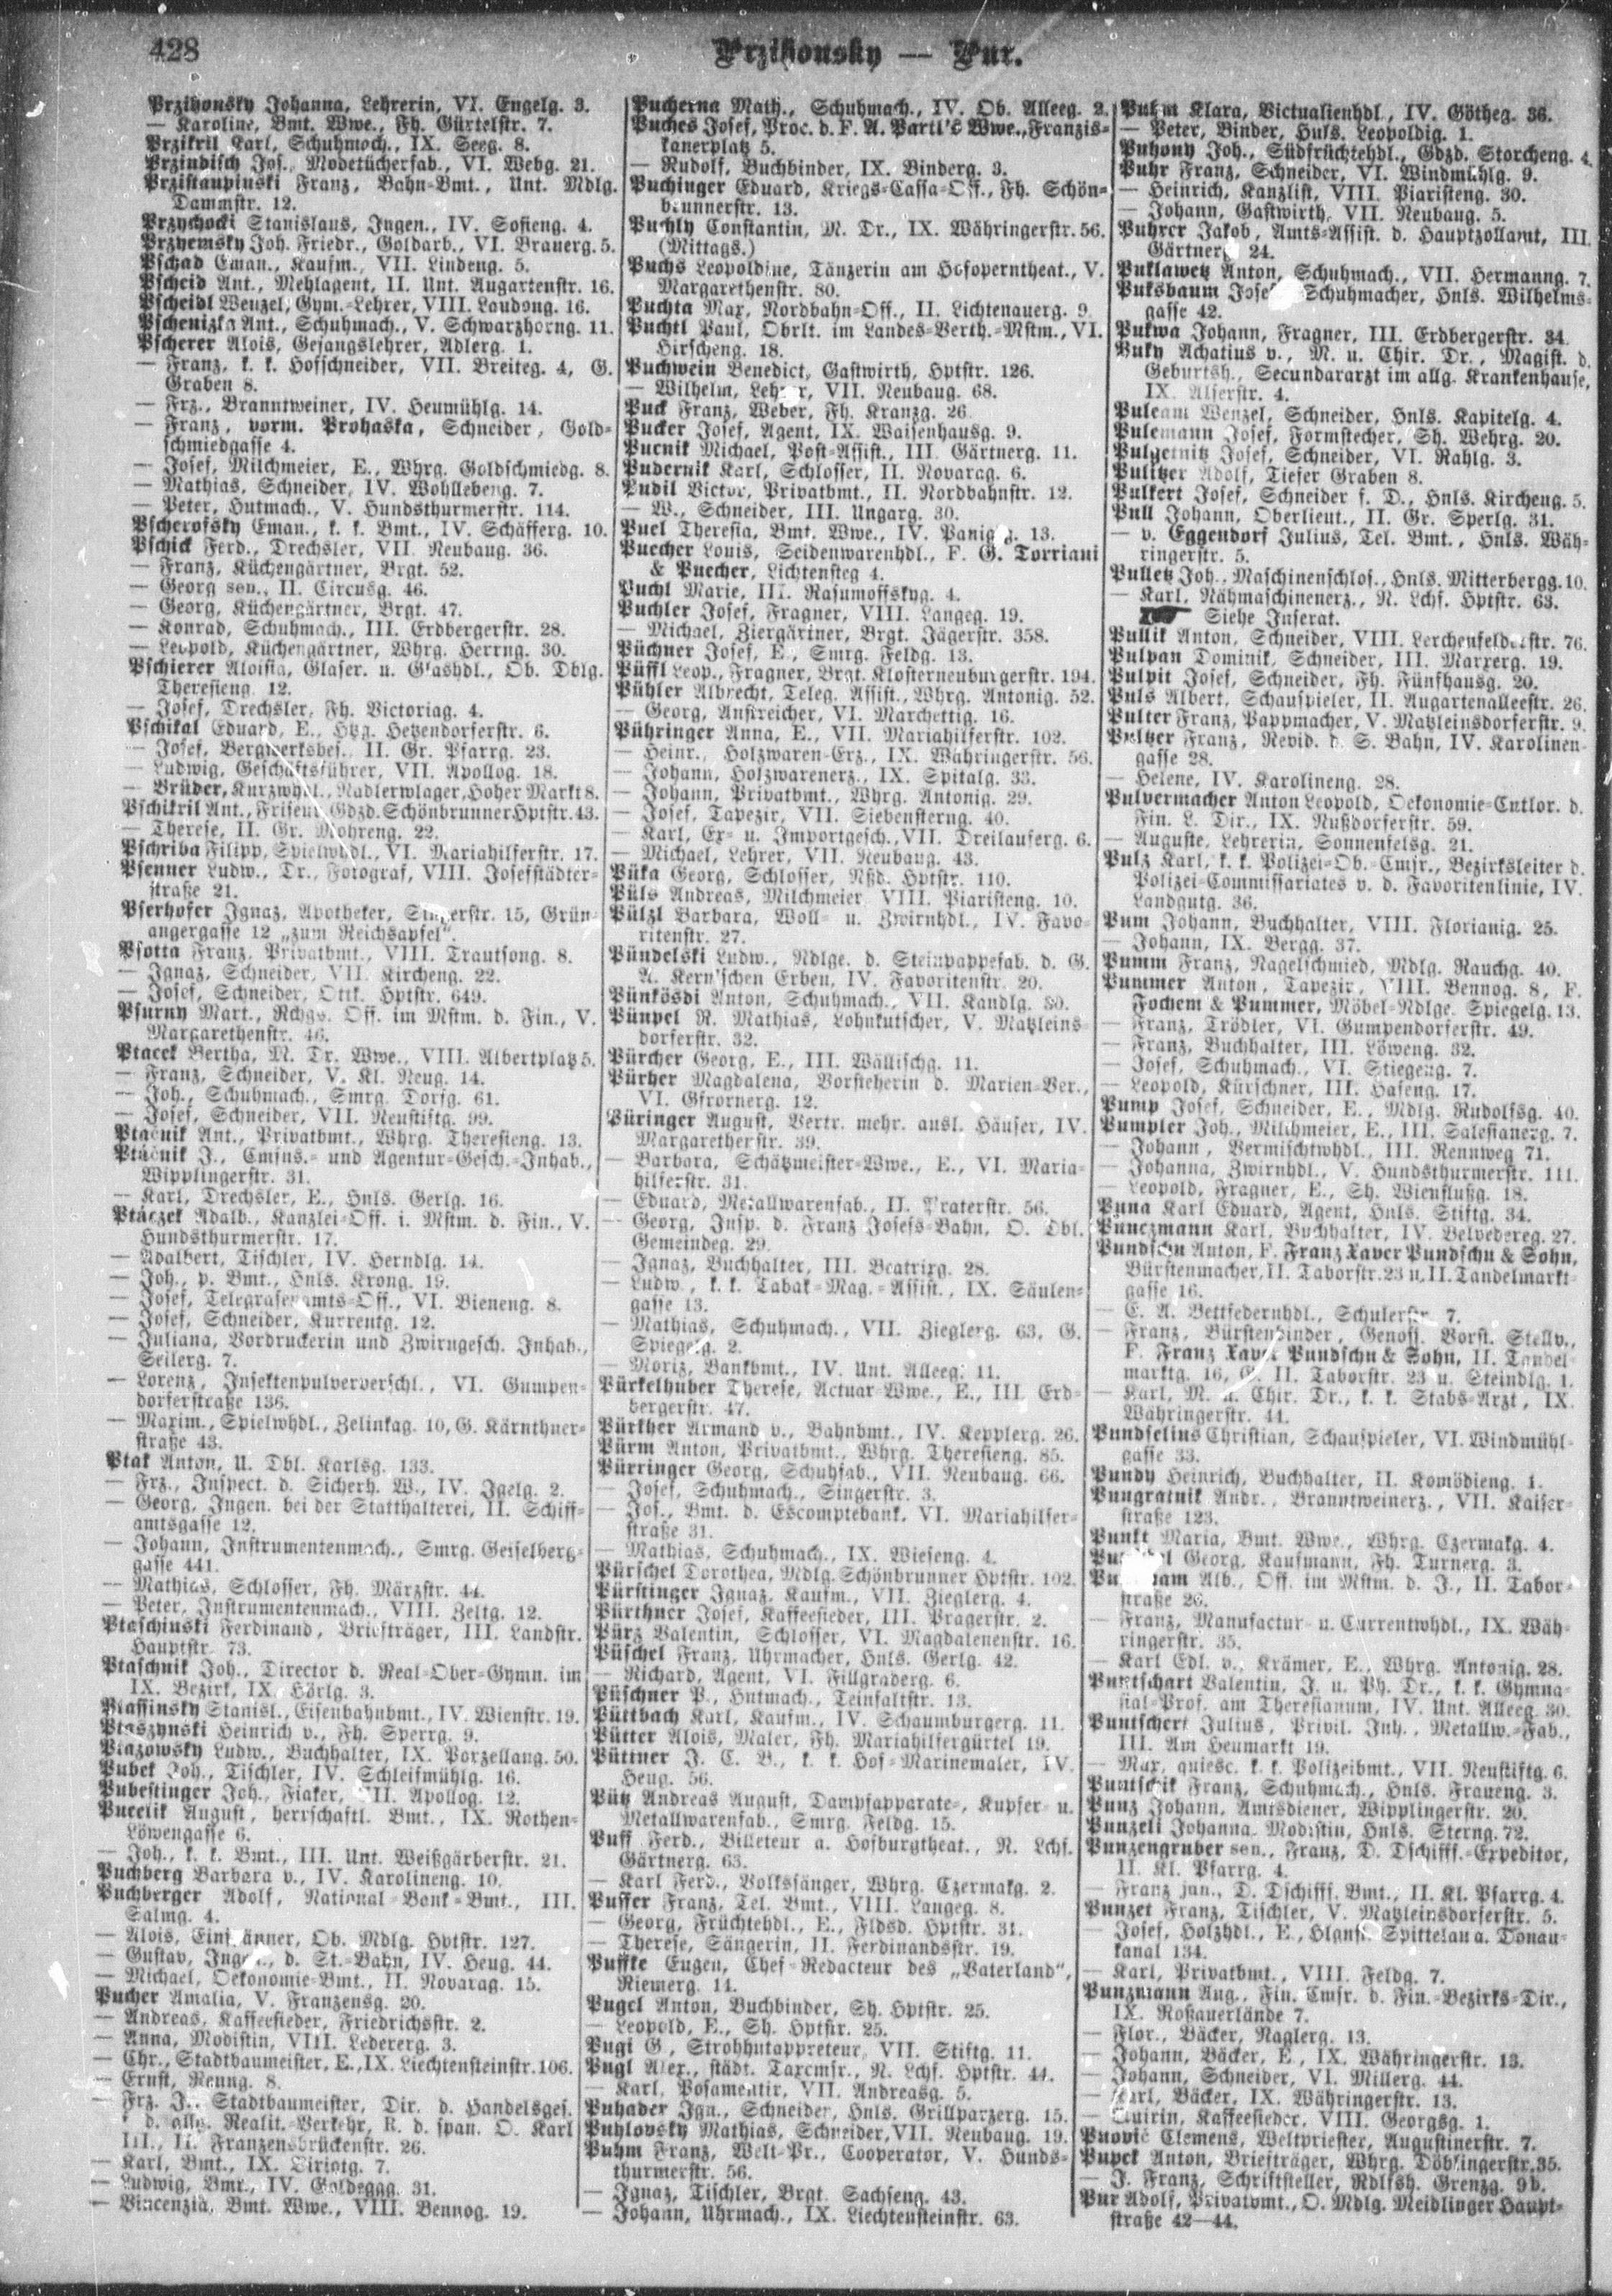 428
Przihonsky — Pur.
Przihonsky Johanna, Lehrerin, VI. Engelg. 3.
— Karoline, Bmt. Wwe., Fh. Gürtelstr. 7.
Przikril Karl, Schuhmach., IX. Seeg. 8.
Przindisch Jos., Modetücherfab., VI. Webg. 21.
Przistaupinski Franz, Bahn-Bmt., Unt. Mdlg.
Dammstr. 12.
Przychocki Stanislaus, Ingen., IV. Sofieng. 4.
Przyemsky Joh. Friedr., Goldarb., VI. Brauerg. 5.
Pschad Eman., Kaufm., VII. Lindeng. 5.
Pscheid Ant., Mehlagent, II. Unt. Augartenstr. 16.
Pscheidl Wenzel, Gym.-Lehrer, VIII. Laudong. 16.
Pschenizka Ant., Schuhmach., V. Schwarzhorng. 11.
Pscherer Alois, Gesangslehrer, Adlerg. 1.
— Franz, k. k. Hofschneider, VII. Breiteg. 4, G.
Graben 8.
— Frz., Branntweiner, IV. Heumühlg. 14.
— Franz, vorm. Prohaska, Schneider, Gold-
schmiedgasse 4.
— Josef, Milchmeier, E., Whrg. Goldschmiedg. 8.
— Mathias, Schneider, IV. Wohllebeng. 7.
— Peter, Hutmach., V. Hundsthurmerstr. 114.
Pscherofsky Eman., k. k. Bmt., IV. Schäfferg. 10.
Pschick Ferd., Drechsler, VII. Neubaug. 36.
— Franz, Küchengärtner, Brgt. 52.
— Georg sen., II. Circusg. 46.
— Georg, Küchengärtner, Brgt. 47.
— Konrad, Schuhmach., III. Erdbergerstr. 28.
— Leopold, Küchengärtner, Whrg. Herrng. 30.
Pschierer Aloisia, Glaser. u. Glashdl., Ob. Dblg.
Theresieng. 12.
— Josef, Drechsler, Fh. Victoriag. 4.
Pschikal Eduard, E., Htzg. Hetzendorferstr. 6.
— Josef, Bergwerksbes., II. Gr. Pfarrg. 23.
— Ludwig, Geschäftsführer, VII. Apollog. 18.
— Brüder, Kurzwhdl., Nadlerwlager, Hoher Markt 8.
Pschikril Ant., Friseur, Gdzd. Schönbrunner Hptstr. 43.
— Therese, II. Gr. Mohreng. 22.
Pschriba Filipp, Spielwhdl., VI. Mariahilferstr. 17.
Psenner Ludw., Dr., Fotograf, VIII. Josefstädter-
straße 21.
Pserhofer Ignaz, Apotheker, Singerstr. 15, Grün-
angergasse 12 „zum Reichsapfel“.
Psotta Franz, Privatbmt., VIII. Trautsong. 8.
— Ignaz, Schneider, VII. Kircheng. 22.
— Josef, Schneider, Ottk. Hptstr. 649.
Psurny Mart., Rchgs. Off. im Mstm. d. Fin., V.
Margarethenstr. 46.
Ptacek Bertha, M. Dr. Wwe., VIII. Albertplatz 5.
— Franz, Schneider, V. Kl. Neug. 14.
— Joh., Schuhmach., Smrg. Dorfg. 61.
— Josef, Schneider, VII. Neustiftg. 99.
Ptacnik Ant., Privatbmt., Whrg. Theresieng. 13.
Ptacnik J., Cmsns.- und Agentur-Gesch.-Inhab.,
Wipplingerstr. 31.
— Karl, Drechsler, E., Hnls. Gerlg. 16.
Ptaczek Adalb., Kanzlei-Off. i. Mstm. d. Fin., V.
Hundsthurmerstr. 17.
— Adalbert, Tischler, IV. Herndlg. 14.
— Joh., p. Bmt., Hnls. Krong. 19.
— Josef, Telegrafenamts-Off., VI. Bieneng. 8.
— Josef, Schneider, Kurrentg. 12.
— Juliana, Vordruckerin und Zwirngesch. Inhab.,
Seilerg. 7.
— Lorenz, Insektenpulververschl., VI. Gumpen-
dorferstraße 136.
— Maxim., Spielwhdl., Zelinkag. 10, G. Kärnthner-
straße 43.
Ptak Anton, U. Dbl. Karlsg. 133.
— Frz., Inspect. d. Sicherh. W., IV. Igelg. 2.
— Georg, Ingen. bei der Statthalterei, II. Schiff-
amtsgasse 12.
— Johann, Instrumentenmach., Smrg. Geiselberg-
gasse 441.
— Mathias, Schlosser, Fh. Märzstr. 44.
— Peter, Instrumentenmach., VIII. Zeltg. 12.
Ptaschinski Ferdinand, Briefträger, III. Landstr.
Hauptstr. 73.
Ptaschnik Joh., Director d. Real-Ober-Gymn. im
IX. Bezirk, IX. Hörlg. 3.
Ptassinsky Stanisl., Eisenbahnbmt., IV. Wienstr. 19.
Ptaszynski Heinrich v., Fh. Sperrg. 9.
Ptazowsky Ludw., Buchhalter, IX. Porzellang. 50.
Pubek Joh., Tischler, IV. Schleifmühlg. 16.
Pubestinger Joh., Fiaker, VII. Apollog. 12.
Pucelik August, herrschaftl. Bmt., IX. Rothen-
Löwengasse 6.
— Joh., k. k. Bmt., III. Unt. Weißgärberstr. 21.
Puchberg Barbara v., IV. Karolineng. 10.
Puchberger Adolf, National-Bank-Bmt., III.
Salmg. 4.
— Alois, Einspänner, Ob. Mdlg. Hptstr. 127.
— Gustav, d. St.-Bahn, IV. Heug. 44.
— Michael, Oekonomie-Bmt., II. Novarag. 15.
Pucher Amalia, V. Franzensg. 20.
— Andreas, Kaffeesieder, Friedrichsstr. 2.
— Anna, Modistin, VIII. Ledererg. 3.
— Chr., Stadtbaumeister, E., IX. Liechtensteinstr. 106.
— Ernst, Renng. 8.
— Frz. J., Stadtbaumeister, Dir. d. Handelsges.
f. d. allg. Realit.-Verkehr, R. d. span. O. Karl
III., II. Franzensbrückenstr. 26.
— Karl, Bmt., IX. Tirigtg. 7.
— Ludwig, Bmt., IV. Goldeggg. 31.
— Vincenzia, Bmt. Wwe., VIII. Bennog. 19.
Pucherna Math., Schuhmach., IV. Ob. Alleeg. 2.
Puches Josef, Proc. d. F. A. Partl's Wwe., Franzis-
kanerplatz 5.
— Rudolf, Buchbinder, IX. Binderg. 3.
Puchinger Eduard, Kriegs-Cassa-Off., Fh. Schön-
brunnerstr. 13.
Puchly Constantin, M. Dr., IX. Währingerstr. 56.
(Mittags.)
Puchs Leopoldine, Tänzerin am Hofoperntheat., V.
Margarethenstr. 80.
Puchta Max, Nordbahn-Off., II. Lichtenauerg. 9.
Puchtl Paul, Obrlt. im Landes-Verth.-Mstm., VI.
Hirscheng. 18.
Puchwein Benedict, Gastwirth, Hptstr. 126.
— Wilhelm, Lehrer, VII. Neubaug. 68.
Puck Franz, Weber, Fh. Kranzg. 26.
Pucker Josef, Agent, IX. Waisenhausg. 9.
Pucnik Michael, Post-Assist., III. Gärtnerg. 11.
Pudernik Karl, Schlosser, II. Novarag. 6.
Pudil Victor, Privatbmt., II. Nordbahnstr. 12.
— W., Schneider, III. Ungarg. 30.
Puel Theresia, Bmt. Wwe., IV. Panigig. 13.
Puecher Louis, Seidenwarenhdl., F. G. Torriani
& Puecher, Lichtensteg 4.
Puchl Marie, III. Rasumoffskyg. 4.
Puchler Josef, Fragner, VIII. Langeg. 19.
— Michael, Ziergärtner, Brgt. Jägerstr. 358.
Püchner Josef, E., Smrg. Feldg. 13.
Püffl Leop., Fragner, Brgt. Klosterneuburgerstr. 194.
Pühler Albrecht, Teleg. Assist., Whrg. Antonig. 52.
— Georg, Anstreicher, VI. Marchettig. 16.
Pühringer Anna, E., VII. Mariahilferstr. 102.
— Heinr., Holzwaren-Erz., IX. Währingerstr. 56.
— Johann, Holzwarenerz., IX. Spitalg. 33.
— Johann, Privatbmt., Whrg. Antonig. 29.
— Josef, Tapezir, VII. Siebensterng. 40.
— Karl, Ex- u. Importgesch., VII. Dreilauferg. 6.
— Michael, Lehrer, VII. Neubaug. 43.
Püka Georg, Schlosser, Nßd. Hptstr. 110.
Püls Andreas, Milchmeier, VIII. Piaristeng. 10.
Pülzl Barbara, Woll- u. Zwirnhdl., IV. Favo-
ritenstr. 27.
Pündelski Ludw., Ndlge. d. Steinpappefab. d. G.
A. Kern'schen Erben, IV. Favoritenstr. 20.
Pünkösdi Anton, Schuhmach., VII. Kandlg. 30.
Pünpel R. Mathias, Lohnkutscher, V. Matzleins-
dorferstr. 32.
Pürcher Georg, E., III. Wällischg. 11.
Pürher Magdalena, Vorsteherin d. Marien-Ver.,
VI. Gfrornerg. 12.
Püringer August, Vertr. mehr. ausl. Häuser, IV.
Margaretherstr. 39.
— Barbara, Schätzmeister-Wwe., E., VI. Maria-
hilferstr. 31.
— Eduard, Metallwarenfab., II. Praterstr. 56.
— Georg, Insp. d. Franz Josefs-Bahn, O. Dbl.
Gemeindeg. 29.
— Ignaz, Buchhalter, III. Beatrixg. 28.
— Ludw., k. k. Tabak-Mag.-Assist., IX. Säulen-
gasse 13.
— Mathias, Schuhmach., VII. Zieglerg. 63, G.
Spiegelg. 2.
— Moriz, Bankbmt., IV. Unt. Alleeg. 11.
Pürkelhuber Therese, Actuar-Wwe., E., III. Erd-
bergerstr. 47.
Pürkher Armand v., Bahnbmt., IV. Kepplerg. 26.
Pürm Anton, Privatbmt., Whrg. Theresieng. 85.
Pürringer Georg, Schuhfab., VII. Neubaug. 66.
— Josef, Schuhmach., Singerstr. 3.
— Jos., Bmt. d. Escomptebank, VI. Mariahilfer-
straße 31.
— Mathias, Schuhmach., IX. Wieseng. 4.
Pürschel Dorothea, Mdlg. Schönbrunner Hptstr. 102.
Pürstinger Ignaz, Kaufm., VII. Zieglerg. 4.
Pürthner Josef, Kaffeesieder, III. Pragerstr. 2.
Pürz Valentin, Schlosser, VI. Magdalenenstr. 16.
Püschel Franz, Uhrmacher, Hnls. Gerlg. 42.
— Richard, Agent, VI. Fillgraderg. 6.
Püschner P., Hutmach., Teinfaltstr. 13.
Püttbach Karl, Kaufm., IV. Schaumburgerg. 11.
Pütter Alois, Maler, Fh. Mariahilfergürtel 19.
Püttner J. C. B., k. k. Hof-Marinemaler, IV.
Heug. 56.
Pütz Andreas August, Dampfapparate-, Kupfer- u.
Metallwarenfab., Smrg. Feldg. 15.
Puff Ferd., Billeteur a. Hofburgtheat., N. Lchf.
Gärtnerg. 63.
— Karl Ferd., Volkssänger, Whrg. Czermakg. 2.
Puffer Franz, Tel. Bmt., VIII. Langeg. 8.
— Georg, Früchtehdl., E., Fldsd. Hptstr. 31.
— Therese, Sängerin, II. Ferdinandsstr. 19.
Puffke Eugen, Chef-Redacteur des „Vaterland“,
Riemerg. 14.
Pugel Anton, Buchbinder, Sh. Hptstr. 25.
— Leopold, E., Sh. Hptstr. 25.
Pugi G., Strohhutappreteur, VII. Stiftg. 11.
Pugl Alex., städt. Taxcmsr., N. Lchf. Hptstr. 44.
— Karl, Posamentir, VII. Andreasg. 5.
Puhader Ign., Schneider, Hnls. Grillparzerg. 15.
Puhlovsky Mathias, Schneider, VII. Neubaug. 19.
Puhm Franz, Welt-Pr., Cooperator, V. Hunds-
thurmerstr. 56.
— Ignaz, Tischler, Brgt. Sachseng. 43.
— Johann, Uhrmach., IX. Liechtensteinstr. 63.
Puhm Klara, Victualienhdl., IV. Götheg. 36.
— Peter, Binder, Hnls. Leopoldig. 1.
Puhony Joh., Südfrüchtehdl., Gdzd. Storcheng. 4.
Puhr Franz, Schneider, VI. Windmühlg. 9.
— Heinrich, Kanzlist, VIII. Piaristeng. 30.
— Johann, Gastwirth, VII. Neubaug. 5.
Puhrer Jakob, Amts-Assist. d. Hauptzollamt, III.
Gärtnerg. 24.
Puklawetz Anton, Schuhmach., VII. Hermanng. 7.
Puksbaum Josef, Schuhmacher, Hnls. Wilhelms-
gasse 42.
Pukwa Johann, Fragner, III. Erdbergerstr. 34.
Puky Achatius v., M. u. Chir. Dr., Magist. d.
Geburtsh., Secundararzt im allg. Krankenhause,
IX. Alserstr. 4.
Pulcam Wenzel, Schneider, Hnls. Kapitelg. 4.
Pulemann Josef, Formstecher, Sh. Wehrg. 20.
Pulgetnitz Josef, Schneider, VI. Rahlg. 3.
Pulitzer Adolf, Tiefer Graben 8.
Pulkert Josef, Schneider f. D., Hnls. Kircheng. 5.
Pull Johann, Oberlieut., II. Gr. Sperlg. 31.
— v. Eggendorf Julius, Tel. Bmt., Hnls. Wäh-
ringerstr. 5.
Pulletz Joh., Maschinenschlos., Hnls. Mitterbergg. 10.
— Karl, Nähmaschinenerz., N. Lchf. Hptstr. 63.
Siehe Inserat.
Pullik Anton, Schneider, VIII. Lerchenfelderstr. 76.
Pulpan Dominik, Schneider, III. Marxerg. 19.
Pulpit Josef, Schneider, Fh. Fünfhausg. 20.
Puls Albert, Schauspieler, II. Augartenalleestr. 26.
Pulter Franz, Pappmacher, V. Matzleinsdorferstr. 9.
Pultzer Franz, Revid. d. S. Bahn, IV. Karolinen-
gasse 28.
— Helene, IV. Karolineng. 28.
Pulvermacher Anton Leopold, Oekonomie-Cntlor. d.
Fin. L. Dir., IX. Nußdorferstr. 59.
— Auguste, Lehrerin, Sonnenfelsg. 21.
Pulz Karl, k. k. Polizei-Ob.-Cmsr., Bezirksleiter d.
Polizei-Commissariates v. d. Favoritenlinie, IV.
Landgutg. 36.
Pum Johann, Buchhalter, VIII. Florianig. 25.
— Johann, IX. Bergg. 37.
Pumm Franz, Nagelschmied, Mdlg. Rauchg. 40.
Pummer Anton, Tapezir, VIII. Bennog. 8, F.
Fochem & Pummer, Möbel-Ndlge. Spiegelg. 13.
— Franz, Trödler, VI. Gumpendorferstr. 49.
— Franz, Buchhalter, III. Löweng. 32.
— Josef, Schuhmach., VI. Stiegeng. 7.
— Leopold, Kürschner, III. Hafeng. 17.
Pump Josef, Schneider, E., Mdlg. Rudolfsg. 40.
Pumpler Joh., Milchmeier, E., III. Salesianerg. 7.
— Johann, Vermischtwhdl., III. Rennweg 71.
— Johanna, Zwirnhdl., V. Hundsthurmerstr. 111.
— Leopold, Fragner, E., Sh. Wienflußg. 18.
Puna Karl Eduard, Agent, Hnls. Stiftg. 34.
Punczmann Karl, Buchhalter, IV. Belvedereg. 27.
Pundschu Anton, F. Franz Xaver Pundschu & Sohn,
Bürstenmacher, II. Taborstr. 23 u. II. Tandelmarkt-
gasse 16.
— E. A. Bettfedernhdl., Schulerstr. 7.
— Franz, Bürstenbinder, Genoss. Vorst. Stellv.,
F. Franz Xaver Pundschu & Sohn, II. Tandel-
marktg. 16, G. II. Taborstr. 23 u. Steindlg. 1.
— Karl, M. u. Chir. Dr., k. k. Stabs-Arzt, IX.
Währingerstr. 44.
Pundselius Christian, Schauspieler, VI. Windmühl-
gasse 33.
Pundy Heinrich, Buchhalter, II. Komödieng. 1.
Pungratnik Andr., Branntweinerz., VII. Kaiser-
straße 123.
Punkt Maria, Bmt. Wwe., Whrg. Czermakg. 4.
Georg, Kaufmann, Fh. Turnerg. 3.
Alb., Off. im Mstm. d. J., II. Tabor-
straße 26.
— Franz, Manufactur- u. Currentwhdl., IX. Wäh-
ringerstr. 35.
— Karl Edl. v., Krämer, E., Whrg. Antonig. 28.
Puntschart Valentin, J. u. Ph. Dr., k. k. Gymna-
sial-Prof. am Theresianum, IV. Unt. Alleeg. 30.
Puntschert Julius, Privil. Inh., Metallw.-Fab.,
III. Am Heumarkt 19.
— Max, quiesc. k. k. Polizeibmt., VII. Neustiftg. 6.
Puntschik Franz, Schuhmach., Hnls. Fraueng. 3.
Punz Johann, Amtsdiener, Wipplingerstr. 20.
Punzeli Johanna, Modistin, Hnls. Sterng. 72.
Punzengruber sen., Franz, D. Dschifff.-Expeditor,
II. Kl. Pfarrg. 4.
— Franz jun., D. Dschifff. Bmt., II. Kl. Pfarrg. 4.
Punzet Franz, Tischler, V. Matzleinsdorferstr. 5.
— Josef, Holzhdl., E., Hlgnst. Spittelau a. Donau-
kanal 134.
— Karl, Privatbmt., VIII. Feldg. 7.
Punzmann Aug., Fin. Cmsr. d. Fin.-Bezirks-Dir.,
IX. Roßauerlände 7.
— Flor., Bäcker, Naglerg. 13.
— Johann, Bäcker, E., IX. Währingerstr. 13.
— Johann, Schneider, VI. Millerg. 44.
— Karl, Bäcker, IX. Währingerstr. 13.
— Quirin, Kaffeesieder, VIII. Georgsg. 1.
Puović Clemens, Weltpriester, Augustinerstr. 7.
Pupek Anton, Briefträger, Whrg. Döblingerstr. 35.
— J. Franz, Schriftsteller, Rdlfsh. Grenzg. 9b.
Pur Adolf, Privatbmt., O. Mdlg. Meidlinger Haupt-
straße 42—44.